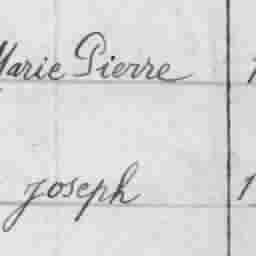 Marie Pierre 1
Joseph 1